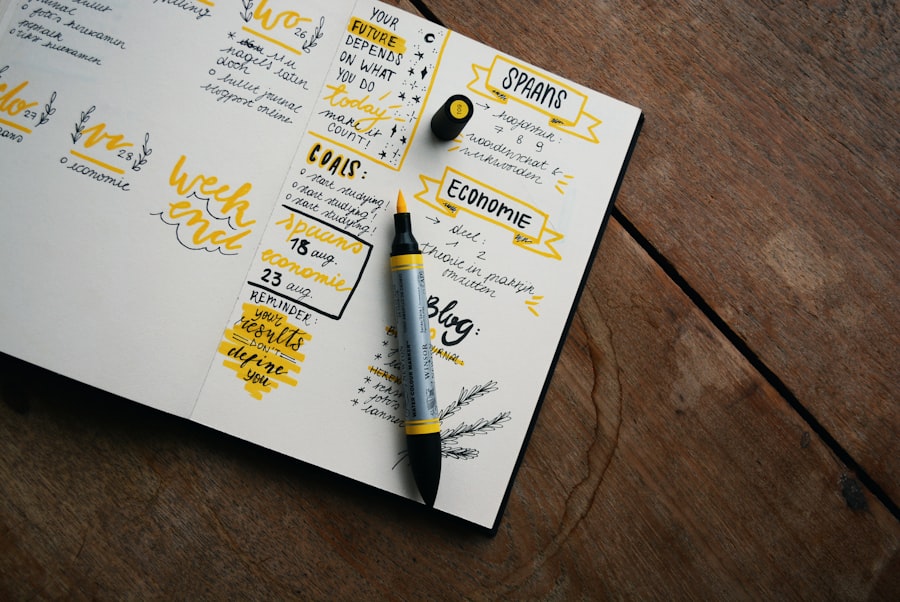 o foto's herexamen
o video herexamen
wo
26
nagels laten
doen
o bullet journal
blogpost online
do
27
vr
28
o economie
week
end
YOUR
FUTURE
DEPENDS
ON WHAT
YOU DO
today
make it
COUNT!
GOALS:
o start studying!
o start studying!
o start studying!
spaans
18 aug.
economie
23 aug.
REMINDER:
your
results
DON'T
define
you
SPAANS
→ hoofdstuk:
7 8 9
woordenschat &
werkwoorden
ECONOMIE
→ deel:
1 2
theorie in praktijk
omzetten
Blog:
WATER COLOUR MARKER
WINSOR